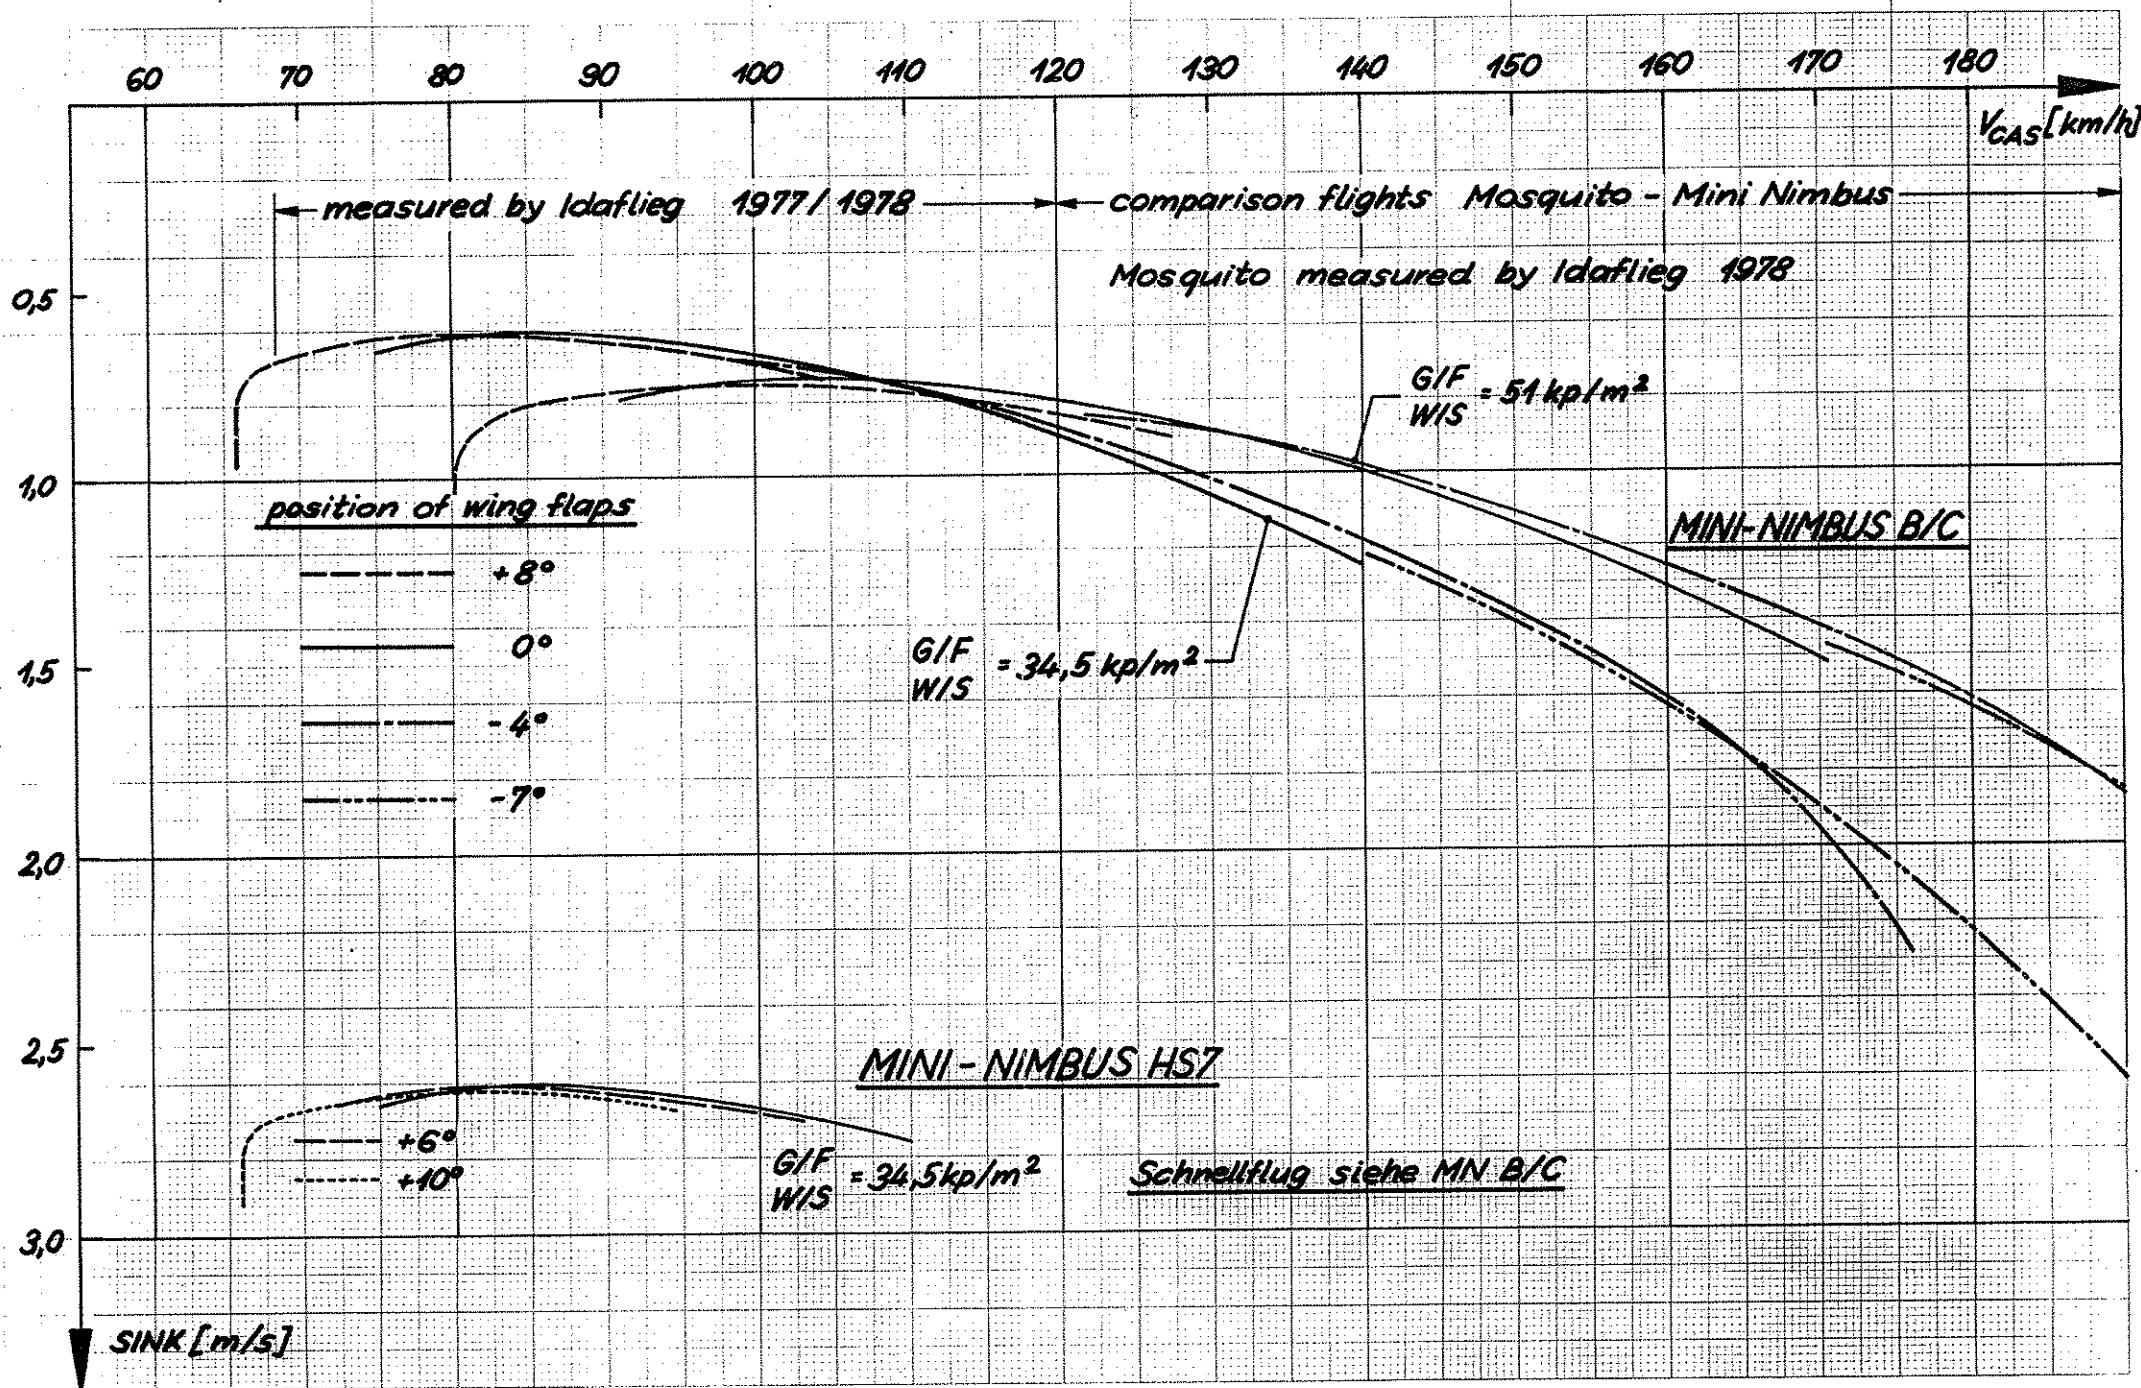 60 70 80 90 100 110 120 130 140 150 160 170 180
VCAS [km/h]
measured by Idaflieg 1977/1978
comparison flights Mosquito - Mini Nimbus
Mosquito measured by Idaflieg 1978
0,5
G/F
W/S = 51 kp/m²
1,0
position of wing flaps
MINI-NIMBUS B/C
+8°
0°
G/F
W/S = 34,5 kp/m²
1,5
-4°
-7°
2,0
2,5
MINI-NIMBUS HS7
+6°
+10°
G/F
W/S = 34,5 kp/m²
Schnellflug siehe MN B/C
3,0
SINK [m/s]